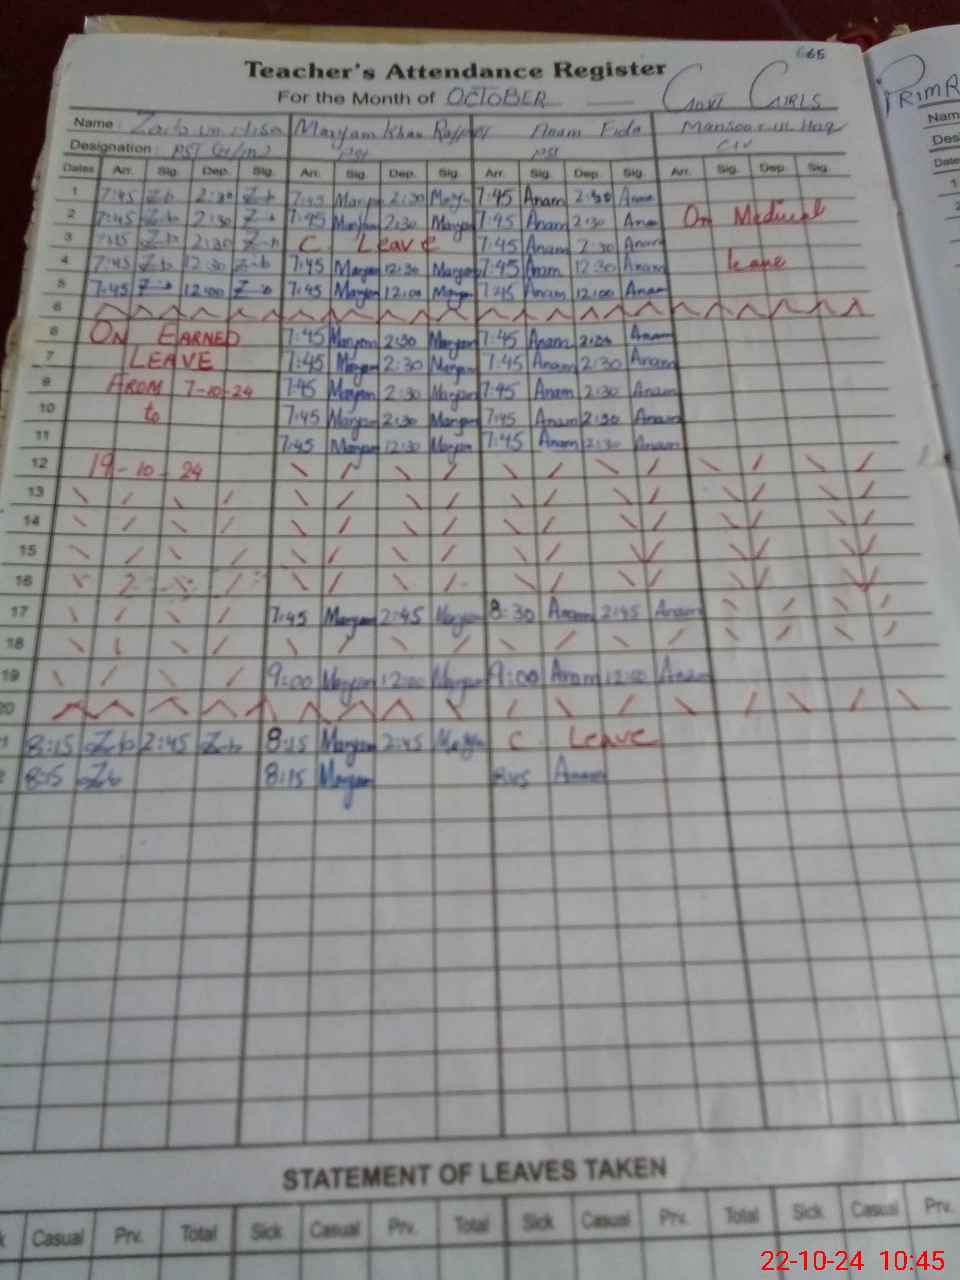 665
Teacher's Attendance Register
For the Month of OCTOBER GOVT GIRLS PRIMR
Name : Zaib un nisa Maryam Khan Anam Fida Mansoor ul Haq Nam
Designation : PST PST PST Des
Dates Arr. Sig. Dep. Sig. Arr. Sig. Dep. Sig. Arr. Sig. Dep. Sig. Arr. Sig. Dep. Sig. Date
1 7:45 Z-b 2:30 Z-b 7:45 Maryam 2:30 Mary 7:45 Anam 2:30 Anam
2 7:45 Z-b 2:30 Z-b 7:45 Maryam 2:30 Maryam 7:45 Anam 2:30 Anam On Medical
3 7:45 Z-b 2:30 Z-b C. Leave 7:45 Anam 2:30 Anam
4 7:45 Z-b 12:30 Z-b 7:45 Maryam 12:30 Maryam 7:45 Anam 12:30 Anam leave
5 7:45 Z-b 12:00 Z-b 7:45 Maryam 12:00 Maryam 7:45 Anam 12:00 Anam
6
8 ON EARNED 7:45 Maryam 2:30 Maryam 7:45 Anam 2:30 Anam
7 LEAVE 7:45 Maryam 2:30 Maryam 7:45 Anam 2:30 Anam
9 FROM 7-10-24 7:45 Maryam 2:30 Maryam 7:45 Anam 2:30 Anam
10 to 7:45 Maryam 2:30 Maryam 7:45 Anam 2:30 Anam
11 7:45 Maryam 12:30 Maryam 7:45 Anam 12:30 Anam
12 19-10-24
13
14
15
16
17 7:45 Maryam 2:45 Maryam 8:30 Anam 2:45 Anam
18
19 9:00 Maryam 12:00 Maryam 9:00 Anam 12:00 Anam
20
1 8:15 Z-b 2:45 Z-b 8:15 Maryam 2:45 Maryam C Leave
2 8:15 Zb 8:15 Maryam 8:45 Anam
STATEMENT OF LEAVES TAKEN
k Casual Prv. Total Sick Casual Prv. Total Sick Casual Prv. Total Sick Casual Prv.
22-10-24 10:45